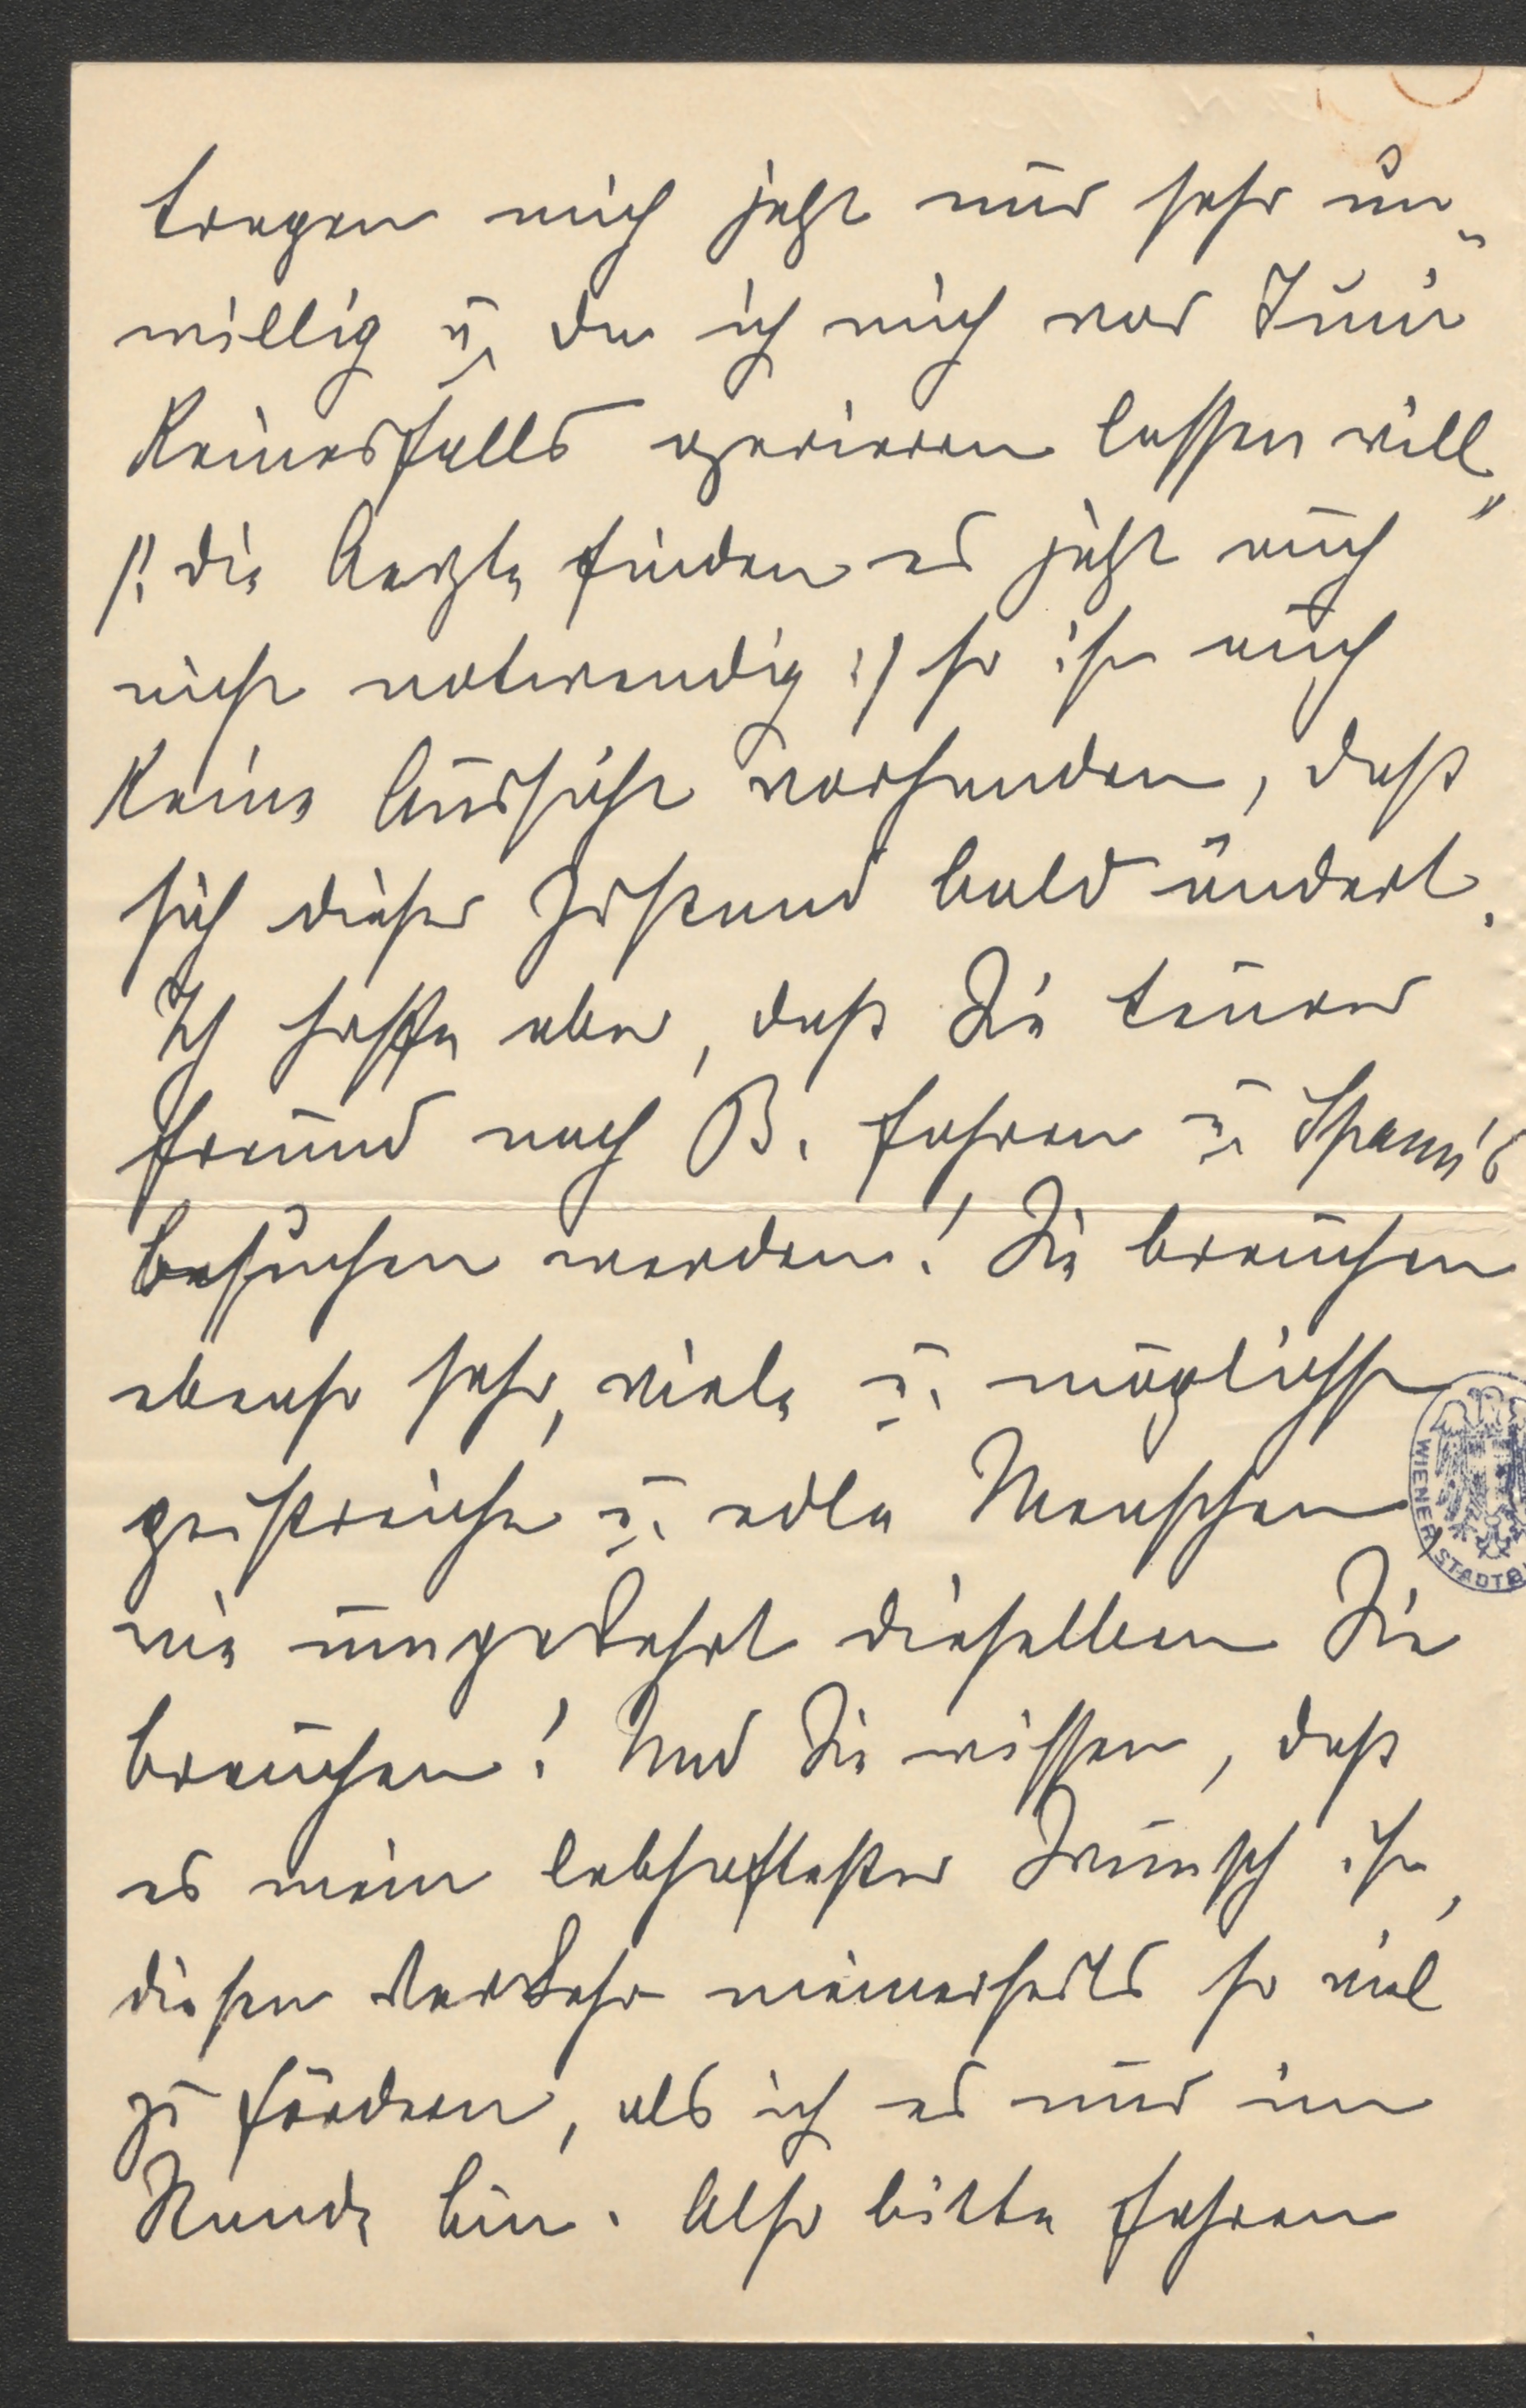 tragen mich jetzt nur sehr un-
willig u. da ich mich vor Juni
keinesfalls operieren lassen will,
/: die Aerzte finden es jetzt auch
nicht notwendig :/ so ist auch
keine Aussicht vorhanden, daß
sich dieser Zustand bald ändert.
Ich hoffe aber, daß Sie teurer
Freund nach B. fahren u. Spann's
besuchen werden! Sie brauchen
ebenso sehr, viele u. möglichst
geistreiche u. edle Menschen,
wie umgekehrt dieselben Sie
brauchen! Und Sie wissen, daß
es mein lebhaftester Wunsch ist,
diesen Verkehr meinerseits so viel
zu fördern, als ich es nur im
Stande bin. Also bitte fahren
WIENER STADTB